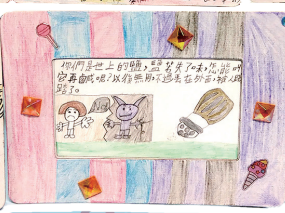 你們是世上的鹽,鹽若失了味,怎能叫
它再鹹呢?以後無用,不過丟在外面,被人踐
踏了。